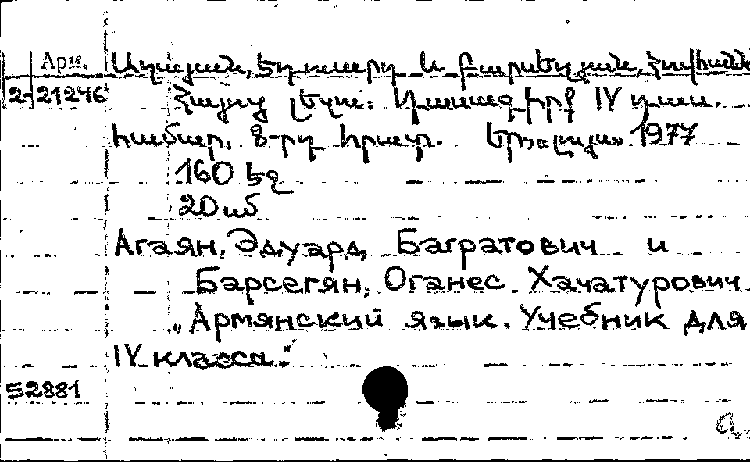 Арм. Աղայան, Էդուարդ և Բարսեղյան, Հովհաննես
2-21246 Հայոց լեզու: Դասագիրք IV դաս.
համար, 8-րդ հրատ. Եր., «Լույս» 1977
160 էջ
20 սմ
Агаян, Эдуард Багратович и
Барсегян, Оганес Хачатурович
"Армянский язык. Учебник для
IV класса."
52881
а.